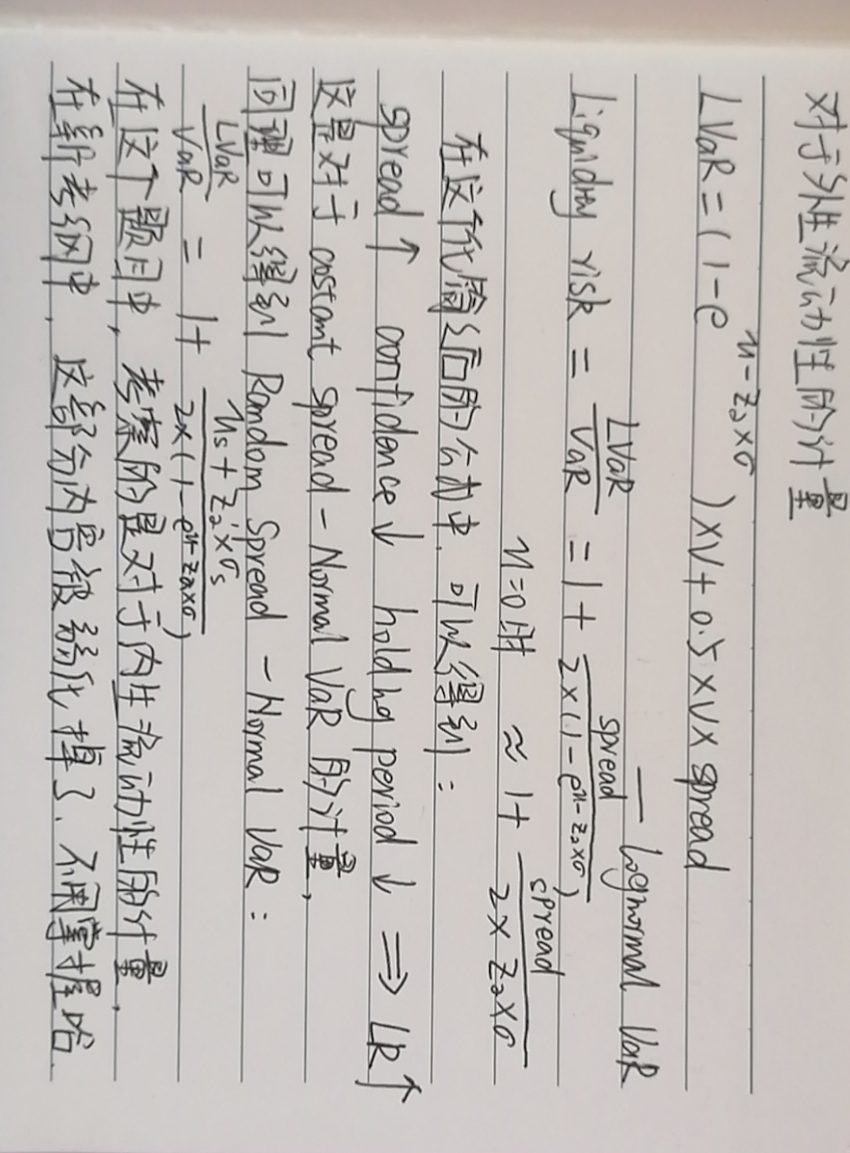 对于外生流动性的计量
LVaR = (1-e^{u-z_α×σ})×V + 0.5×V×spread
— Lognormal VaR
Liquidity risk = LVaR/VaR = 1 + spread/(2×(1-e^{u-z_α×σ}))
u=0时 ≈ 1 + spread/(2×z_α×σ)
在这个化简之后的公式中, 可以得到:
spread↑ confidence↓ holding period↓ ⟹ LR↑
这是对于 costant spread - Normal VaR 的计量,
同理可以得到 Random Spread - Normal VaR:
LVaR/VaR = 1 + (u_s + z_α'×σ_s)/(2×(1-e^{u-z_α×σ}))
在这个题目中, 考察的是对于内生流动性的计量,
在新考纲中, 这部分内容被弱化掉了, 不用掌握哈.